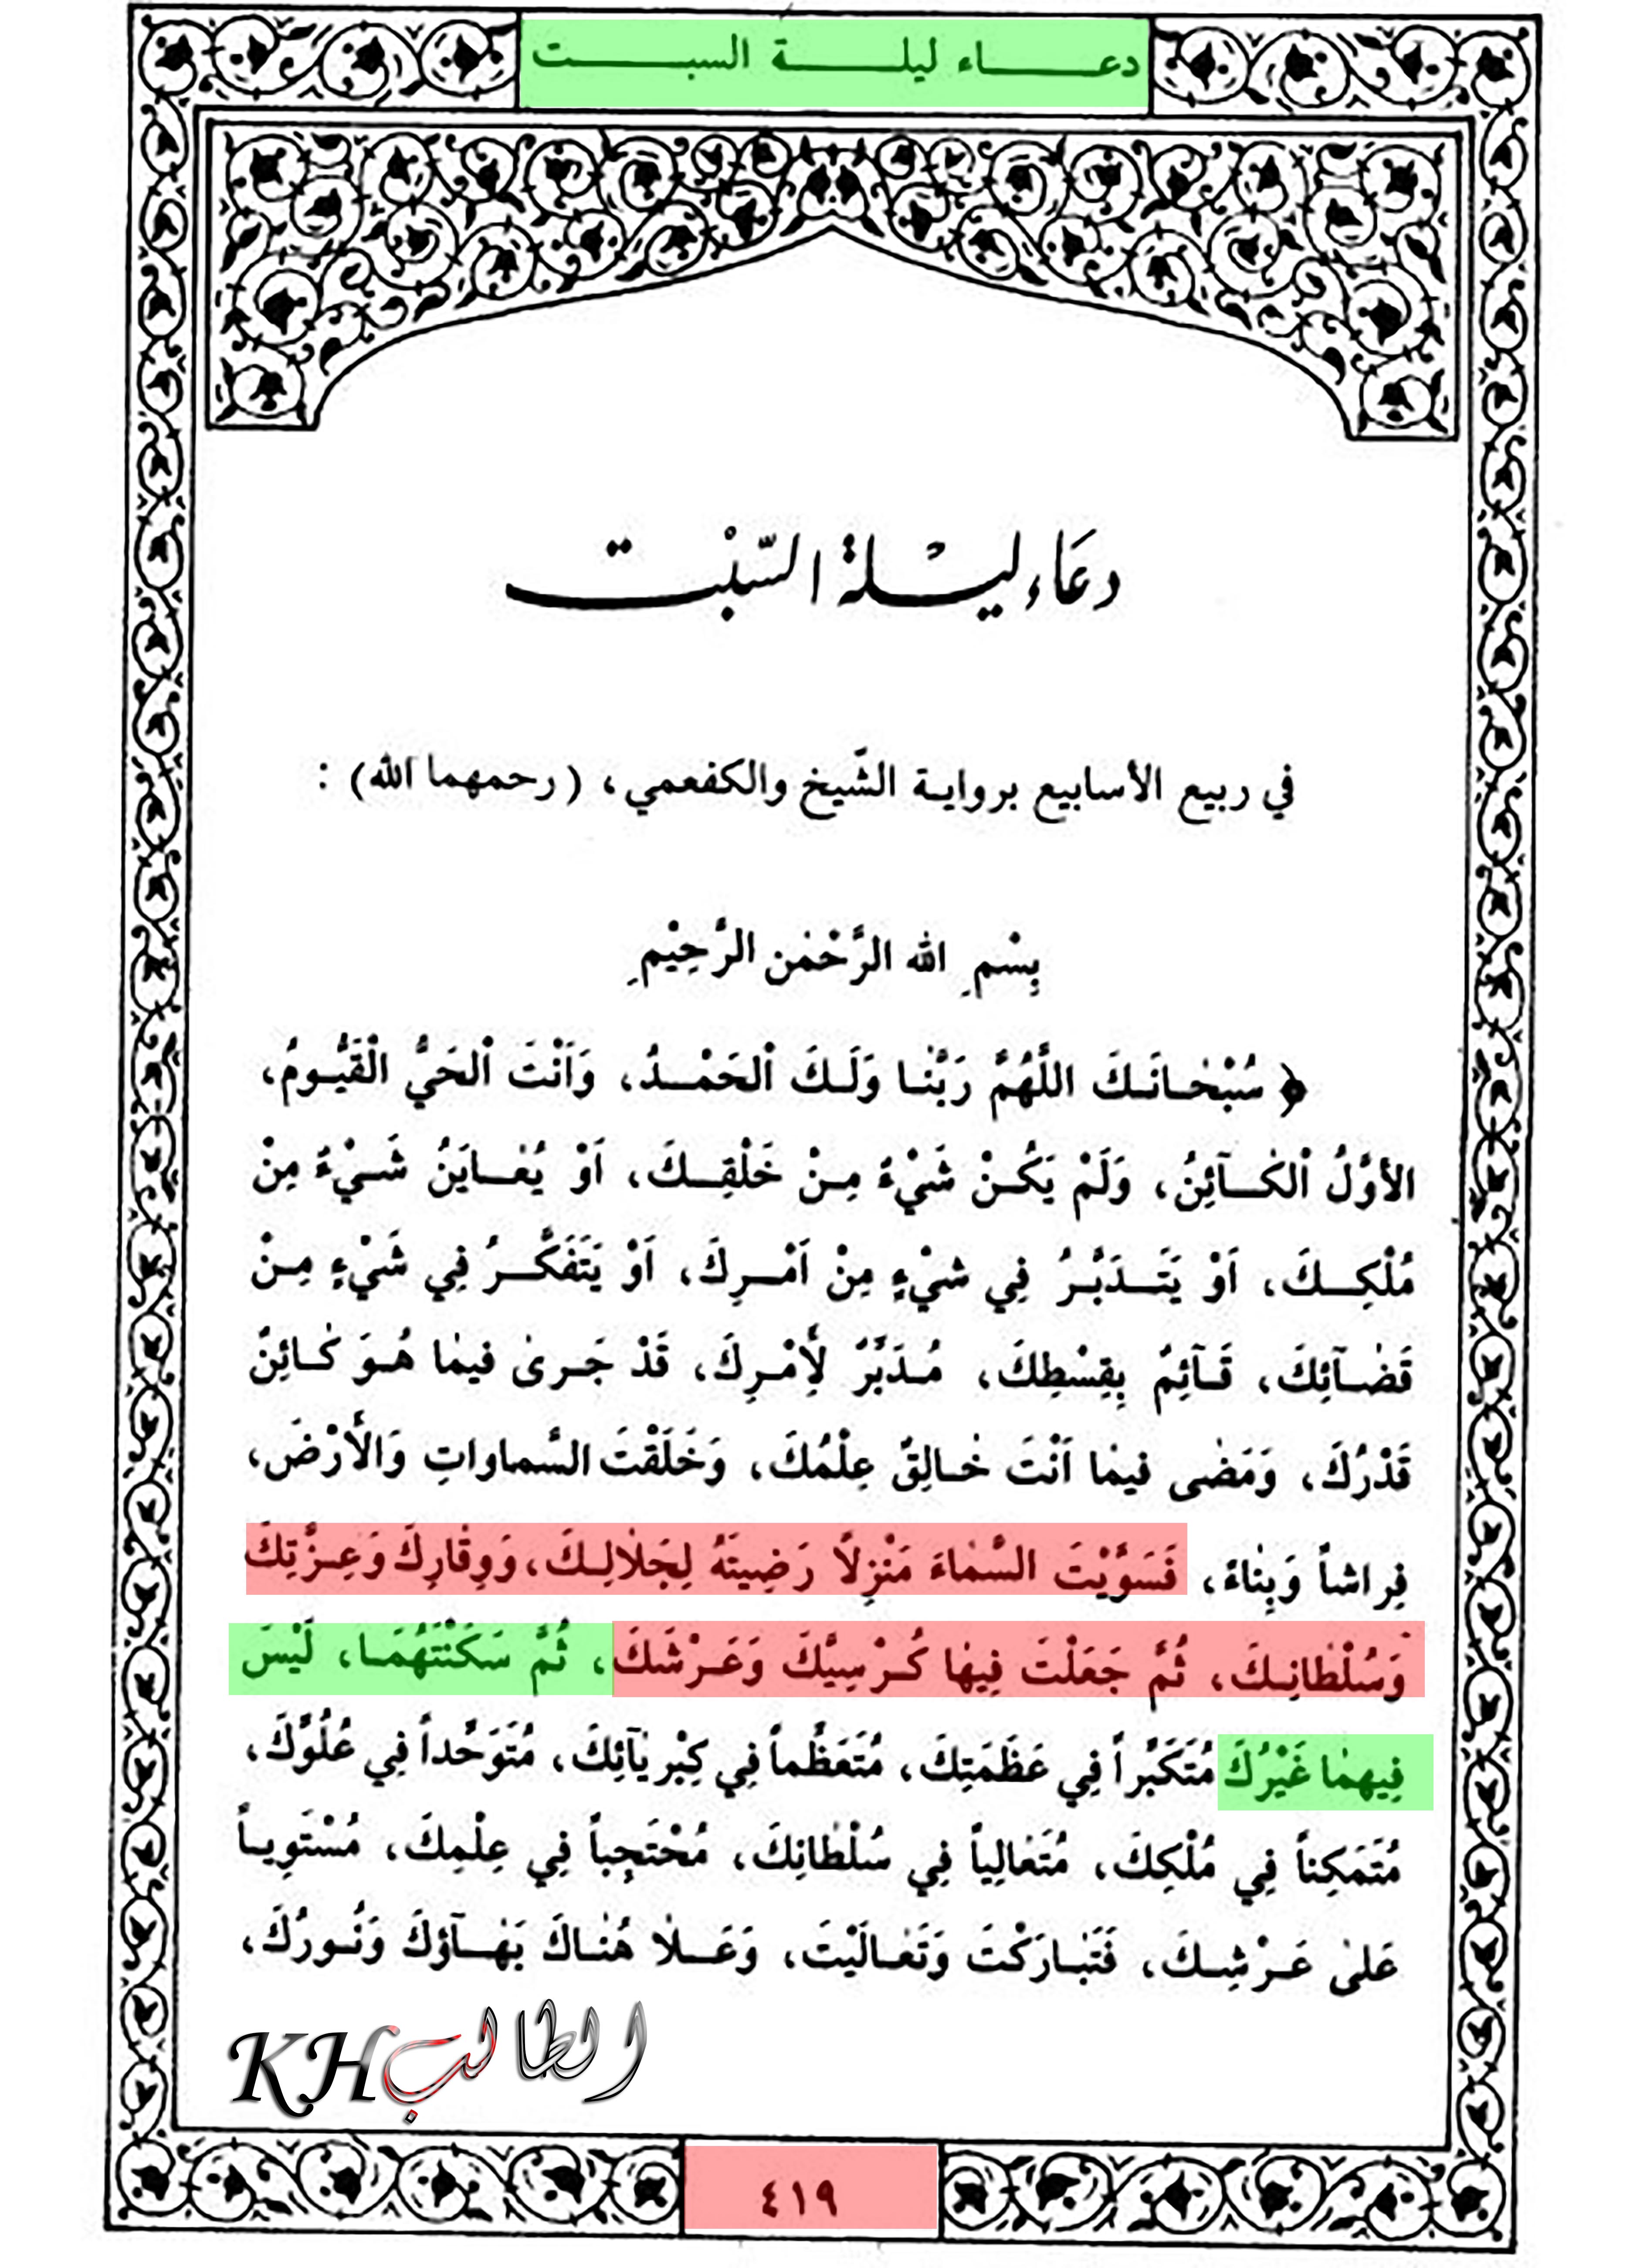 دعاء ليلة السبت
دعَاء ليْلة السّبْت
في ربيع الأسابيع برواية الشّيخ والكفعمي، (رحمهما الله) :
بِسْمِ الله الرَّحْمٰن الرَّحِيْمِ
﴿ سُبْحٰانَكَ اللَّهُمَّ رَبَّنٰا وَلَكَ اْلحَمْدُ، وَاَنْتَ اْلحَيُّ الْقَيُّومُ،
الأوَّلُ اْلكٰآئِنُ، وَلَمْ يَكُنْ شَيْءٌ مِنْ خَلْقِكَ، اَوْ يُعٰايَنُ شَيْءٌ مِنْ
مُلْكِكَ، اَوْ يَتَدَبَّرُ فِي شيْءٍ مِنْ اَمْرِكَ، اَوْ يَتَفَكَّرُ فِي شَيْءٍ مِنْ
قَضٰآئِكَ، قَآئِمٌ بِقِسْطِكَ، مُدَبِّرٌ لِأَمْرِكَ، قَدْ جَرىٰ فيمٰا هُوَ كٰائِنٌ
قَدْرُكَ، وَمَضٰى فيمٰا اَنْتَ خٰالِقٌ عِلْمُكَ، وَخَلَقْتَ السَّماواتِ وَالأَرْضَ،
فِراشاً وَبِنٰاءً، فَسَوَّيْتَ السَّمٰاءَ مَنْزِلاً رَضِيتَهُ لِجَلٰالِكَ، وَوِقٰارِكَ وَعِزَّتِكَ
وَسُلْطٰانِكَ، ثُمَّ جَعَلْتَ فِيهٰا كُرْسِيَّكَ وَعَرْشَكَ، ثُمَّ سَكَنْتَهُمَا، لَيْسَ
فِيهمٰا غَيْرُكَ مُتَكَبِّراً فِي عَظَمَتِكَ، مُتَعَظِّماً فِي كِبْرِيٰآئِكَ، مُتَوَحِّداً فِي عُلُوِّكَ،
مُتَمَكِناً فِي مُلْكِكَ، مُتَعٰالِياً فِي سُلْطٰانِكَ، مُحْتَجِباً فِي عِلْمِكَ، مُسْتَوِياً
عَلىٰ عَرْشِكَ، فَتَبٰارَكْتَ وَتَعٰالَيْتَ، وَعَلٰا هُنٰاكَ بَهٰآؤكَ وَنُورُكَ،
الطالب KH
٤١٩